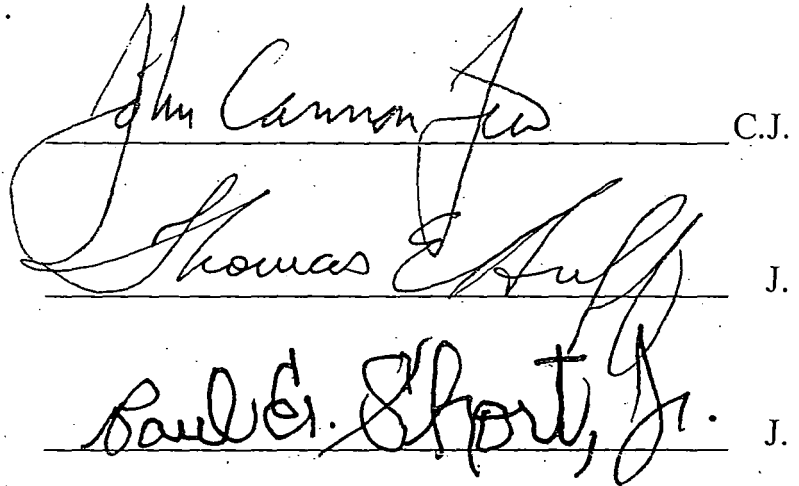 John Cannon Few C.J.
Thomas E Huff J.
Paul E. Short, Jr. J.